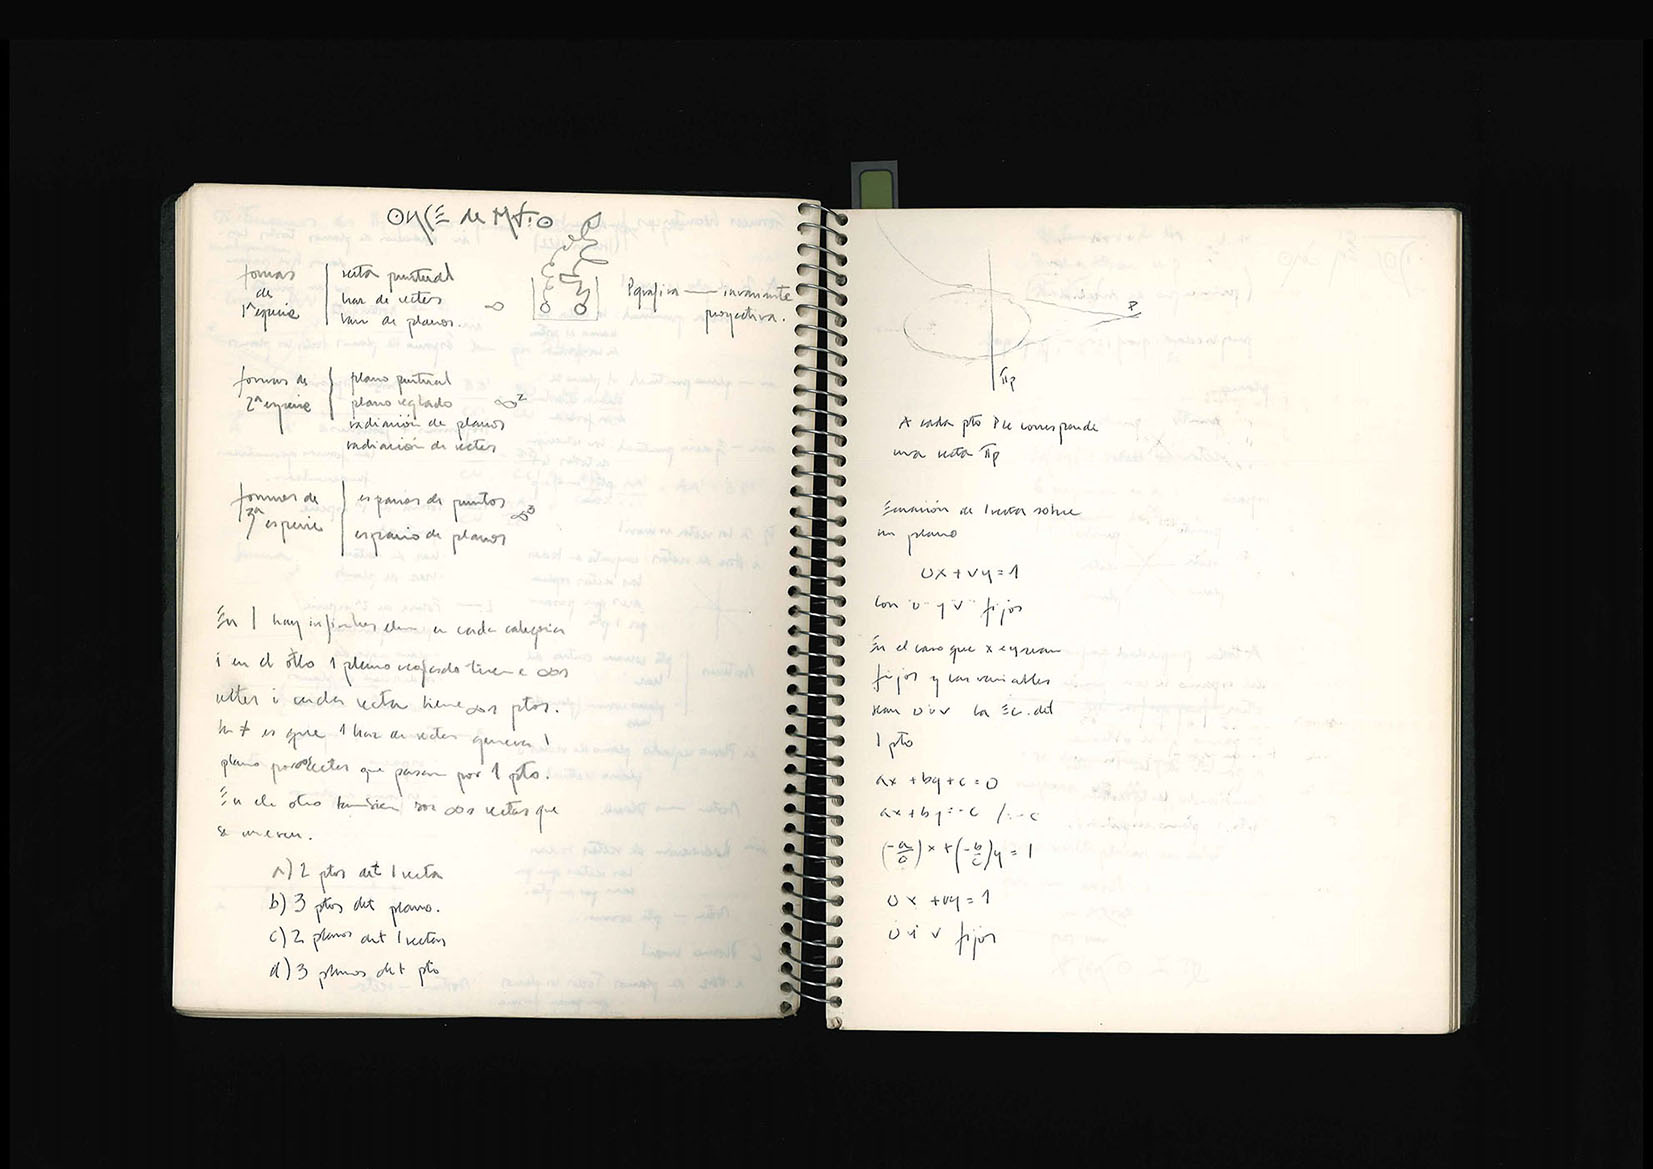 ONCE de MAYO
formas de 1ª especie
recta puntual
haz de rectas
haz de planos.
∞
P grafica — invariante
proyectiva.
formas de 2ª especie
plano puntual
plano reglado
radiación de planos
radiación de rectas
∞²
formas de 3ª especie
espacios de puntos
espacio de planos
∞³
En 1 hay infinitos elem en cada categoria
i en el otro 1 plano reglado tiene ∞s
i cada recta tiene ∞s ptos.
la ≠ es que 1 haz de rectas genera 1
plano rectas que pasan por 1 pto.
En el otro tambien son ∞s rectas que
se mueven.
a) 2 ptos det 1 recta
b) 3 ptos det plano.
c) 2 planos det 1 recta
d) 3 planos det pto
P
πp
A cada pto P le corresponde
una recta πp
Ecuación de 1 recta sobre
un plano
ux + vy = 1
con u y v fijos
En el caso que x e y sean
fijos y las variables
sean u i v la Ec. det
1 pto
ax + by + c = 0
ax + by = -c /: -c
(-a/c) x + (-b/c) y = 1
ux + vy = 1
u i v fijos